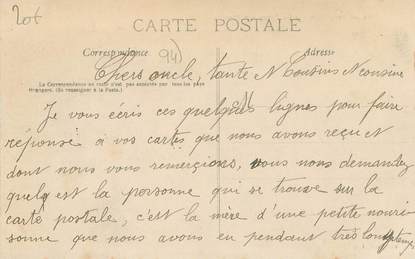 Lot
CARTE POSTALE
Correspondance
94)
Adresse
Chers oncle, tante N Cousins N cousine
La Correspondance au recto n'est pas acceptée par tous les pays
étrangers. (Se renseigner à la Poste.)
Je vous écris ces quelques lignes pour faire
réponse à vos cartes que nous avons reçu et
dont nous vous remercions, vous nous demandez
quelq est la personne qui se trouve sur la
carte postale, c'est la mère d'une petite nourri-
sonne que nous avons eu pendant très longtemps